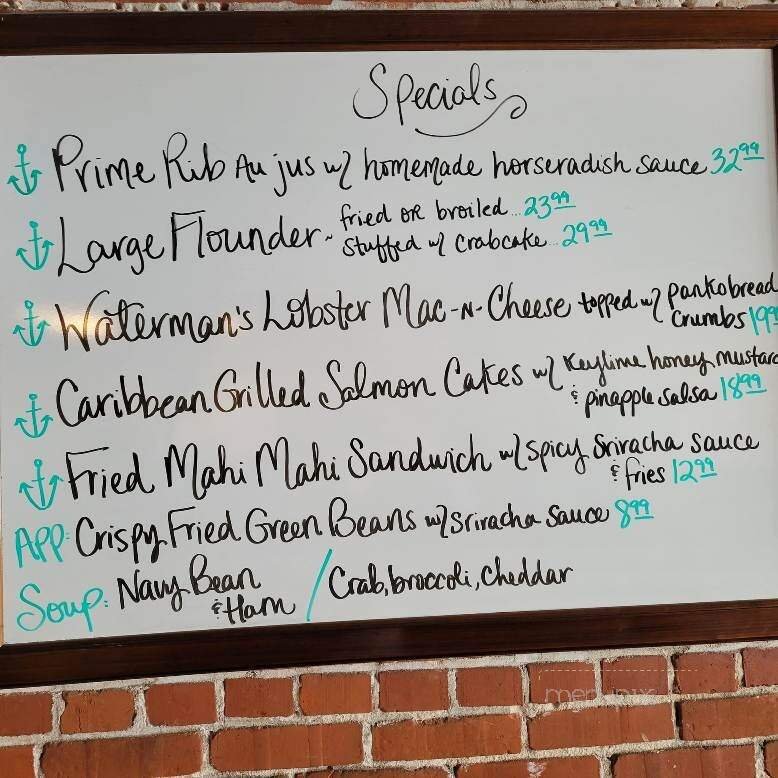 Specials
Prime Rib Au jus w/ homemade horseradish sauce 32.99
Large Flounder ~ fried or broiled... 23.99
stuffed w/ crabcake... 29.99
Waterman's Lobster Mac-N-Cheese topped w/ panko bread
crumbs 199
Caribbean Grilled Salmon Cakes w/ Keylime honey mustard
& pinapple salsa 18.99
Fried Mahi Mahi Sandwich w/ spicy Sriracha sauce
& fries 12.99
APP: Crispy Fried Green Beans w/ sriracha sauce 8.99
Soup: Navy Bean / Crab, broccoli, cheddar
& Ham
menupix